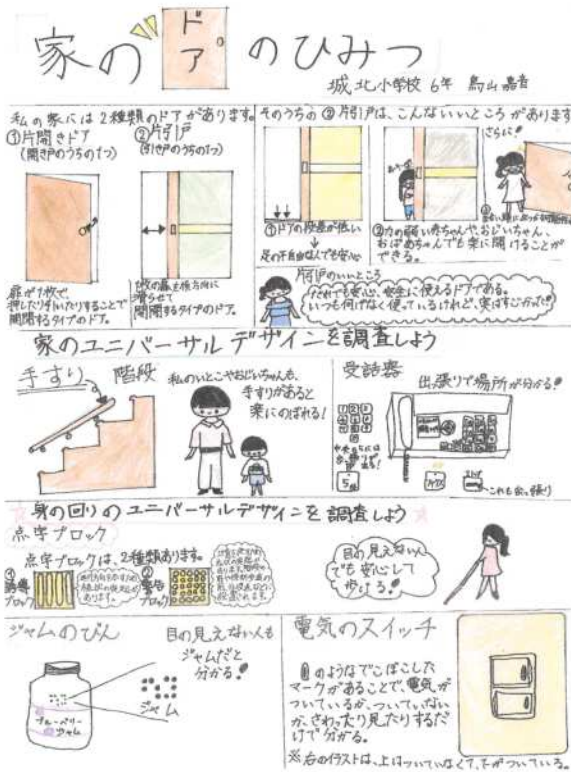 家のドアのひみつ
城北小学校 6年
私の家には2種類のドアがあります。
①片開きドア
(開き戸のうちの1つ)
②片引戸
(引き戸のうちの1つ)
扉が1枚で、
押したり引いたりすることで
開閉するタイプのドア。
1枚の扉を横方向に
滑らせて
開閉するタイプのドア。
そのうちの②片引戸は、こんないいところがあります
さらに!
①ドアの段差が低い
足の不自由な人でも安心
②力の弱い赤ちゃんや、おじいちゃん、
おばあちゃんでも楽に開けることが
できる。
片引戸のいいところ
だれでも安心、安全に使えるドアである。
いつも何げなく使っているけれど、実はすごかった!
家のユニバーサルデザインを調査しよう
手すり 階段
私のいとこやおじいちゃんも、
手すりがあると
楽にのぼれる!
受話器
出っ張りで場所が分かる!
これも出っ張り
身の回りのユニバーサルデザインを調査しよう
点字ブロック
点字ブロックは、2種類あります。
①誘導
ブロック
②警告
ブロック
目の見えない人
でも安心して
歩ける!
ジャムのびん
目の見えない人も
ジャムだと
分かる!
ブルーベリー
ジャム
ジャム
電気のスイッチ
のようなでこぼこした
マークがあることで、電気が
ついているか、ついていない
か、さわったり見たりするだ
けで分かる。
※右のイラストは、上はついていなくて、下がついている。